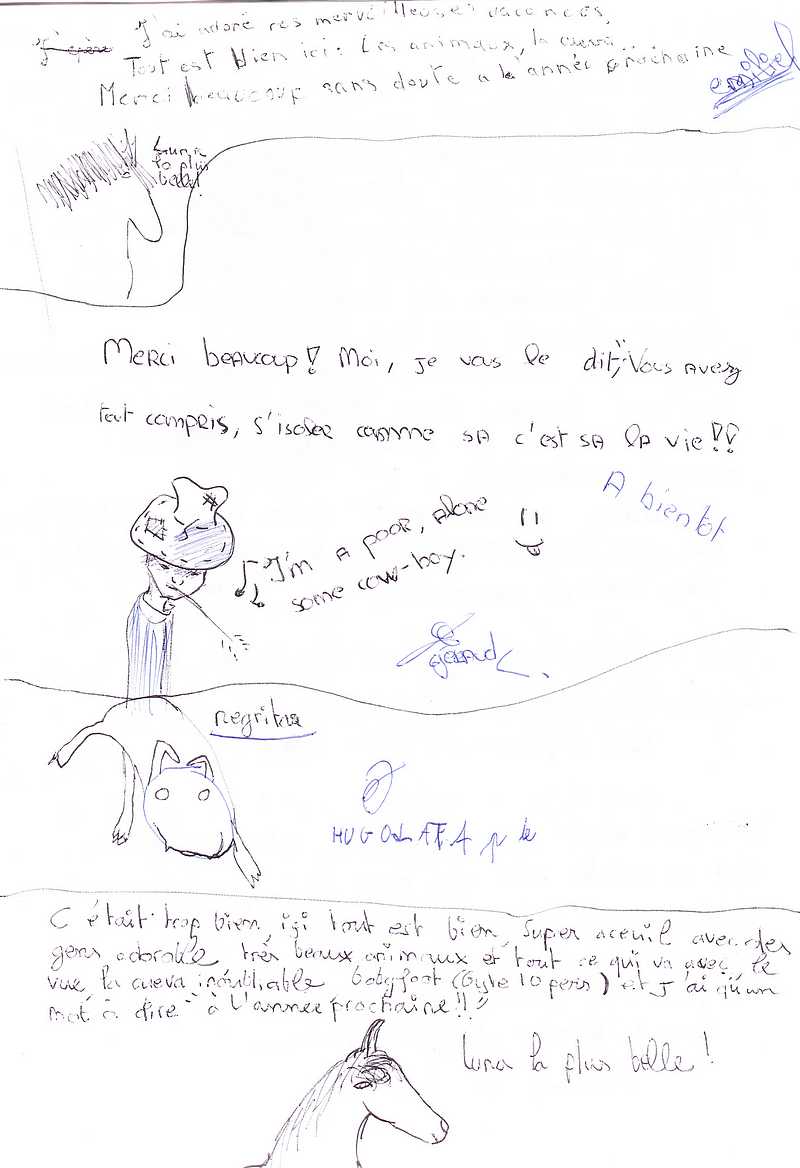 J'ai adoré ces merveilleuses vacances,
Tout est bien ici : Les animaux, la cueva...
Merci beaucoup sans doute a l'année prochaine
Luna
la plus
belle!
Merci beaucoup! Moi, je vous le dit, "Vous avez
tout compris, s'isoler comme sa c'est sa la vie!!
A bientot
I'm a poor, alone
some cow-boy.
negrita
C'était trop bien, içi tout est bien, Super aceuil avec des
gens adorable très beaux animaux et tout ce qui va avec, le
vue la cueva inoubliable babyfoot et J'ai qu'un
mot à dire "à L'année prochaine!!"
Luna la plus belle!